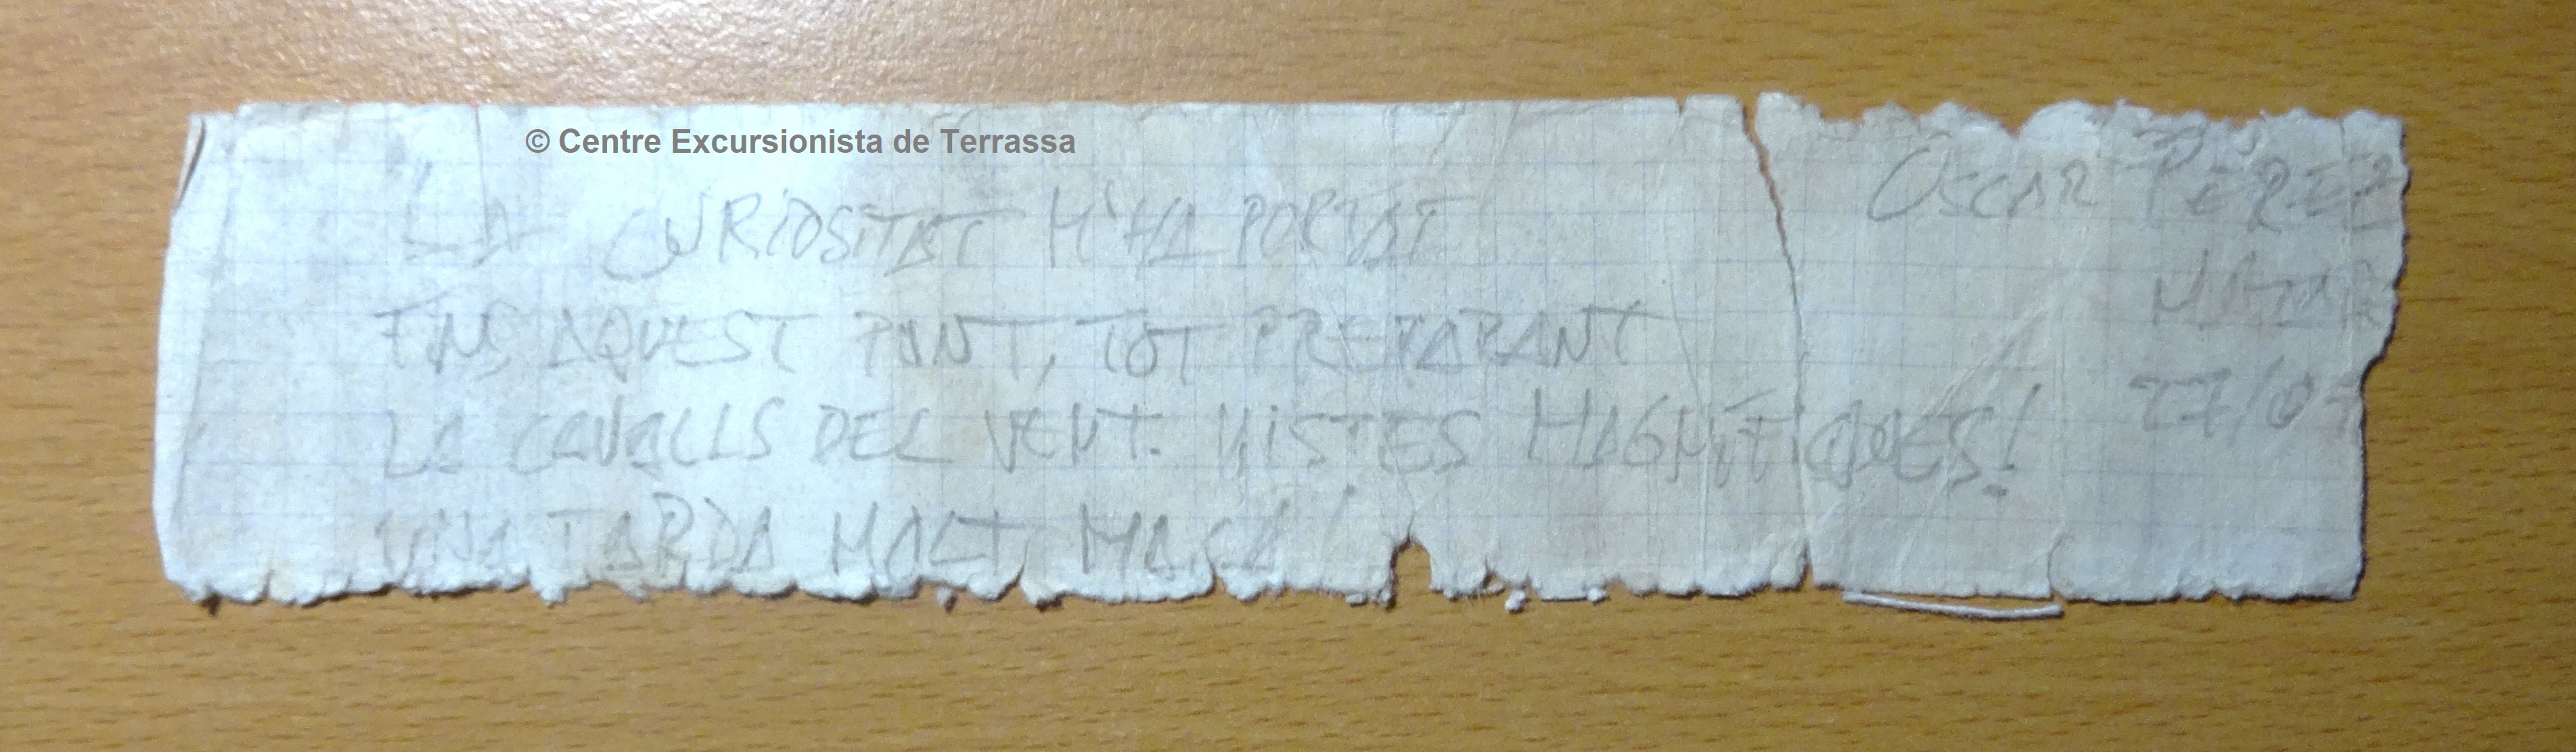 © Centre Excursionista de Terrassa
LA CURIOSITAT M'HA PORTAT
FINS AQUEST PUNT, TOT PREPARANT
LA CAVALLS DEL VENT. VISTES MAGNÍFIQUES!
UNA TARDA MOLT MACA!
OSCAR PÉREZ